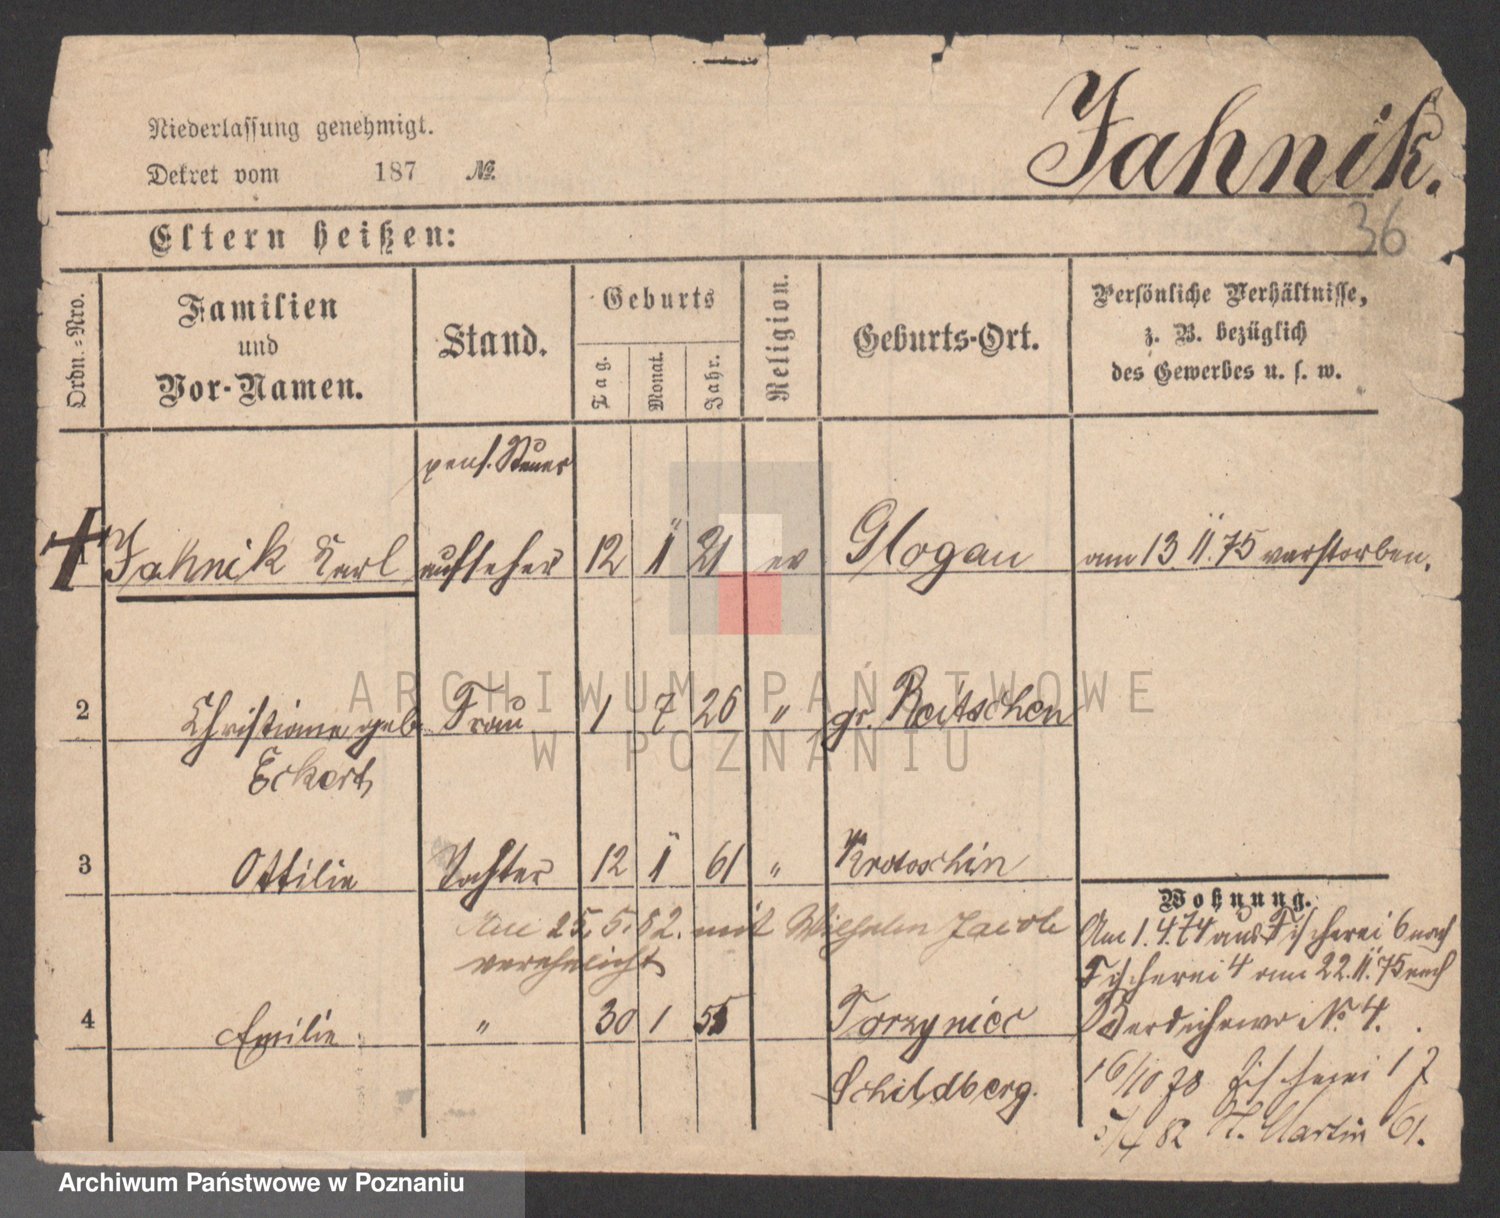 Niederlassung genehmigt.
Dekret vom 187 №.
Jahnik.
36
Eltern heißen:
Ordn.-Nro.
Familien
und
Vor-Namen.
Stand.
Geburts
Tag.
Monat.
Jahr.
Religion.
Geburts-Ort.
Persönliche Verhältnisse,
z. B. bezüglich
des Gewerbes u. s. w.
pens. Steuer
1 Jahnik Karl aufseher 12 11 21 ev Glogau am 13 11. 75 verstorben.
2 Christiane geb. Frau 1 7 26 " gr. Reitschen
Eckert
3 Ottilie Tochter 12 11 61 " Krotoschin
Am 25.5.82. mit Wilhelm Jacob
verehelicht
4 Emilie " 30 1 55
Schildberg.
Wohnung.
Am 1.4.74 aus Fischerei 6 nach
Fischerei 4 am 22.11.75 nach
No. 4.
16/10 78 Fischerei 17
5/4 82 St. Martin 61.
ARCHIWUM PAŃSTWOWE
W POZNANIU
Archiwum Państwowe w Poznaniu